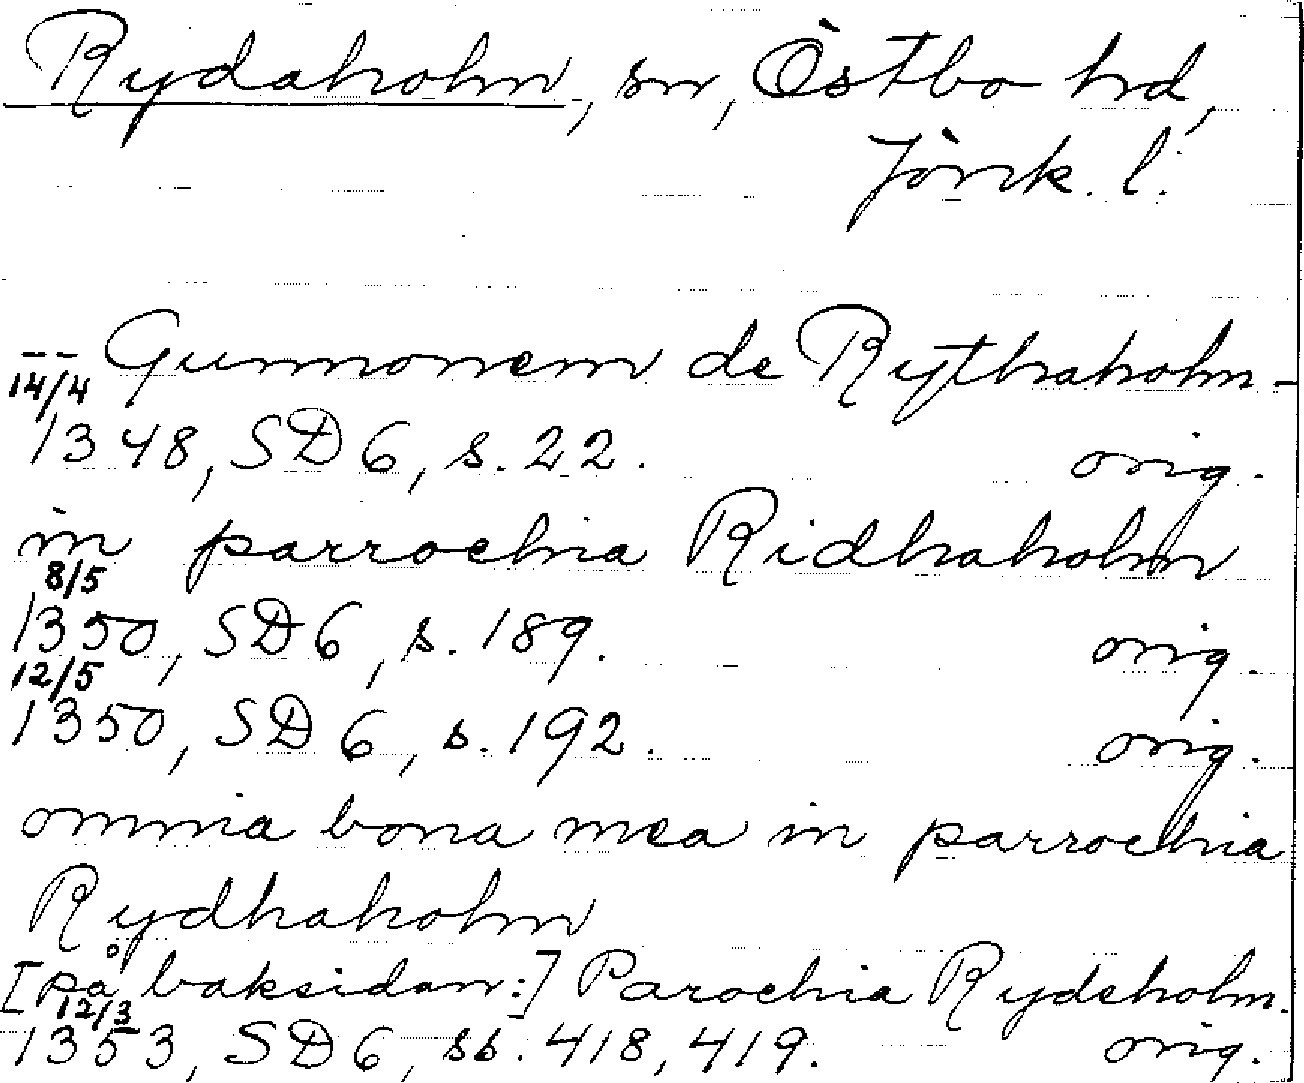 Rydaholm, sn, Östbo hd,
Jönk. l.
-- Gunnonem de Rythraholm -
14/4
1348, SD 6, s. 22. orig.
in parrochia Ridhaholm
8/5
1350, SD 6, s. 189. orig.
12/5
1350, SD 6, s. 192. orig.
omnia bona mea in parrochia
Rydhaholm
[på baksidan:] Parochia Rydeholm.
12/3
1353, SD 6, ss. 418, 419. orig.